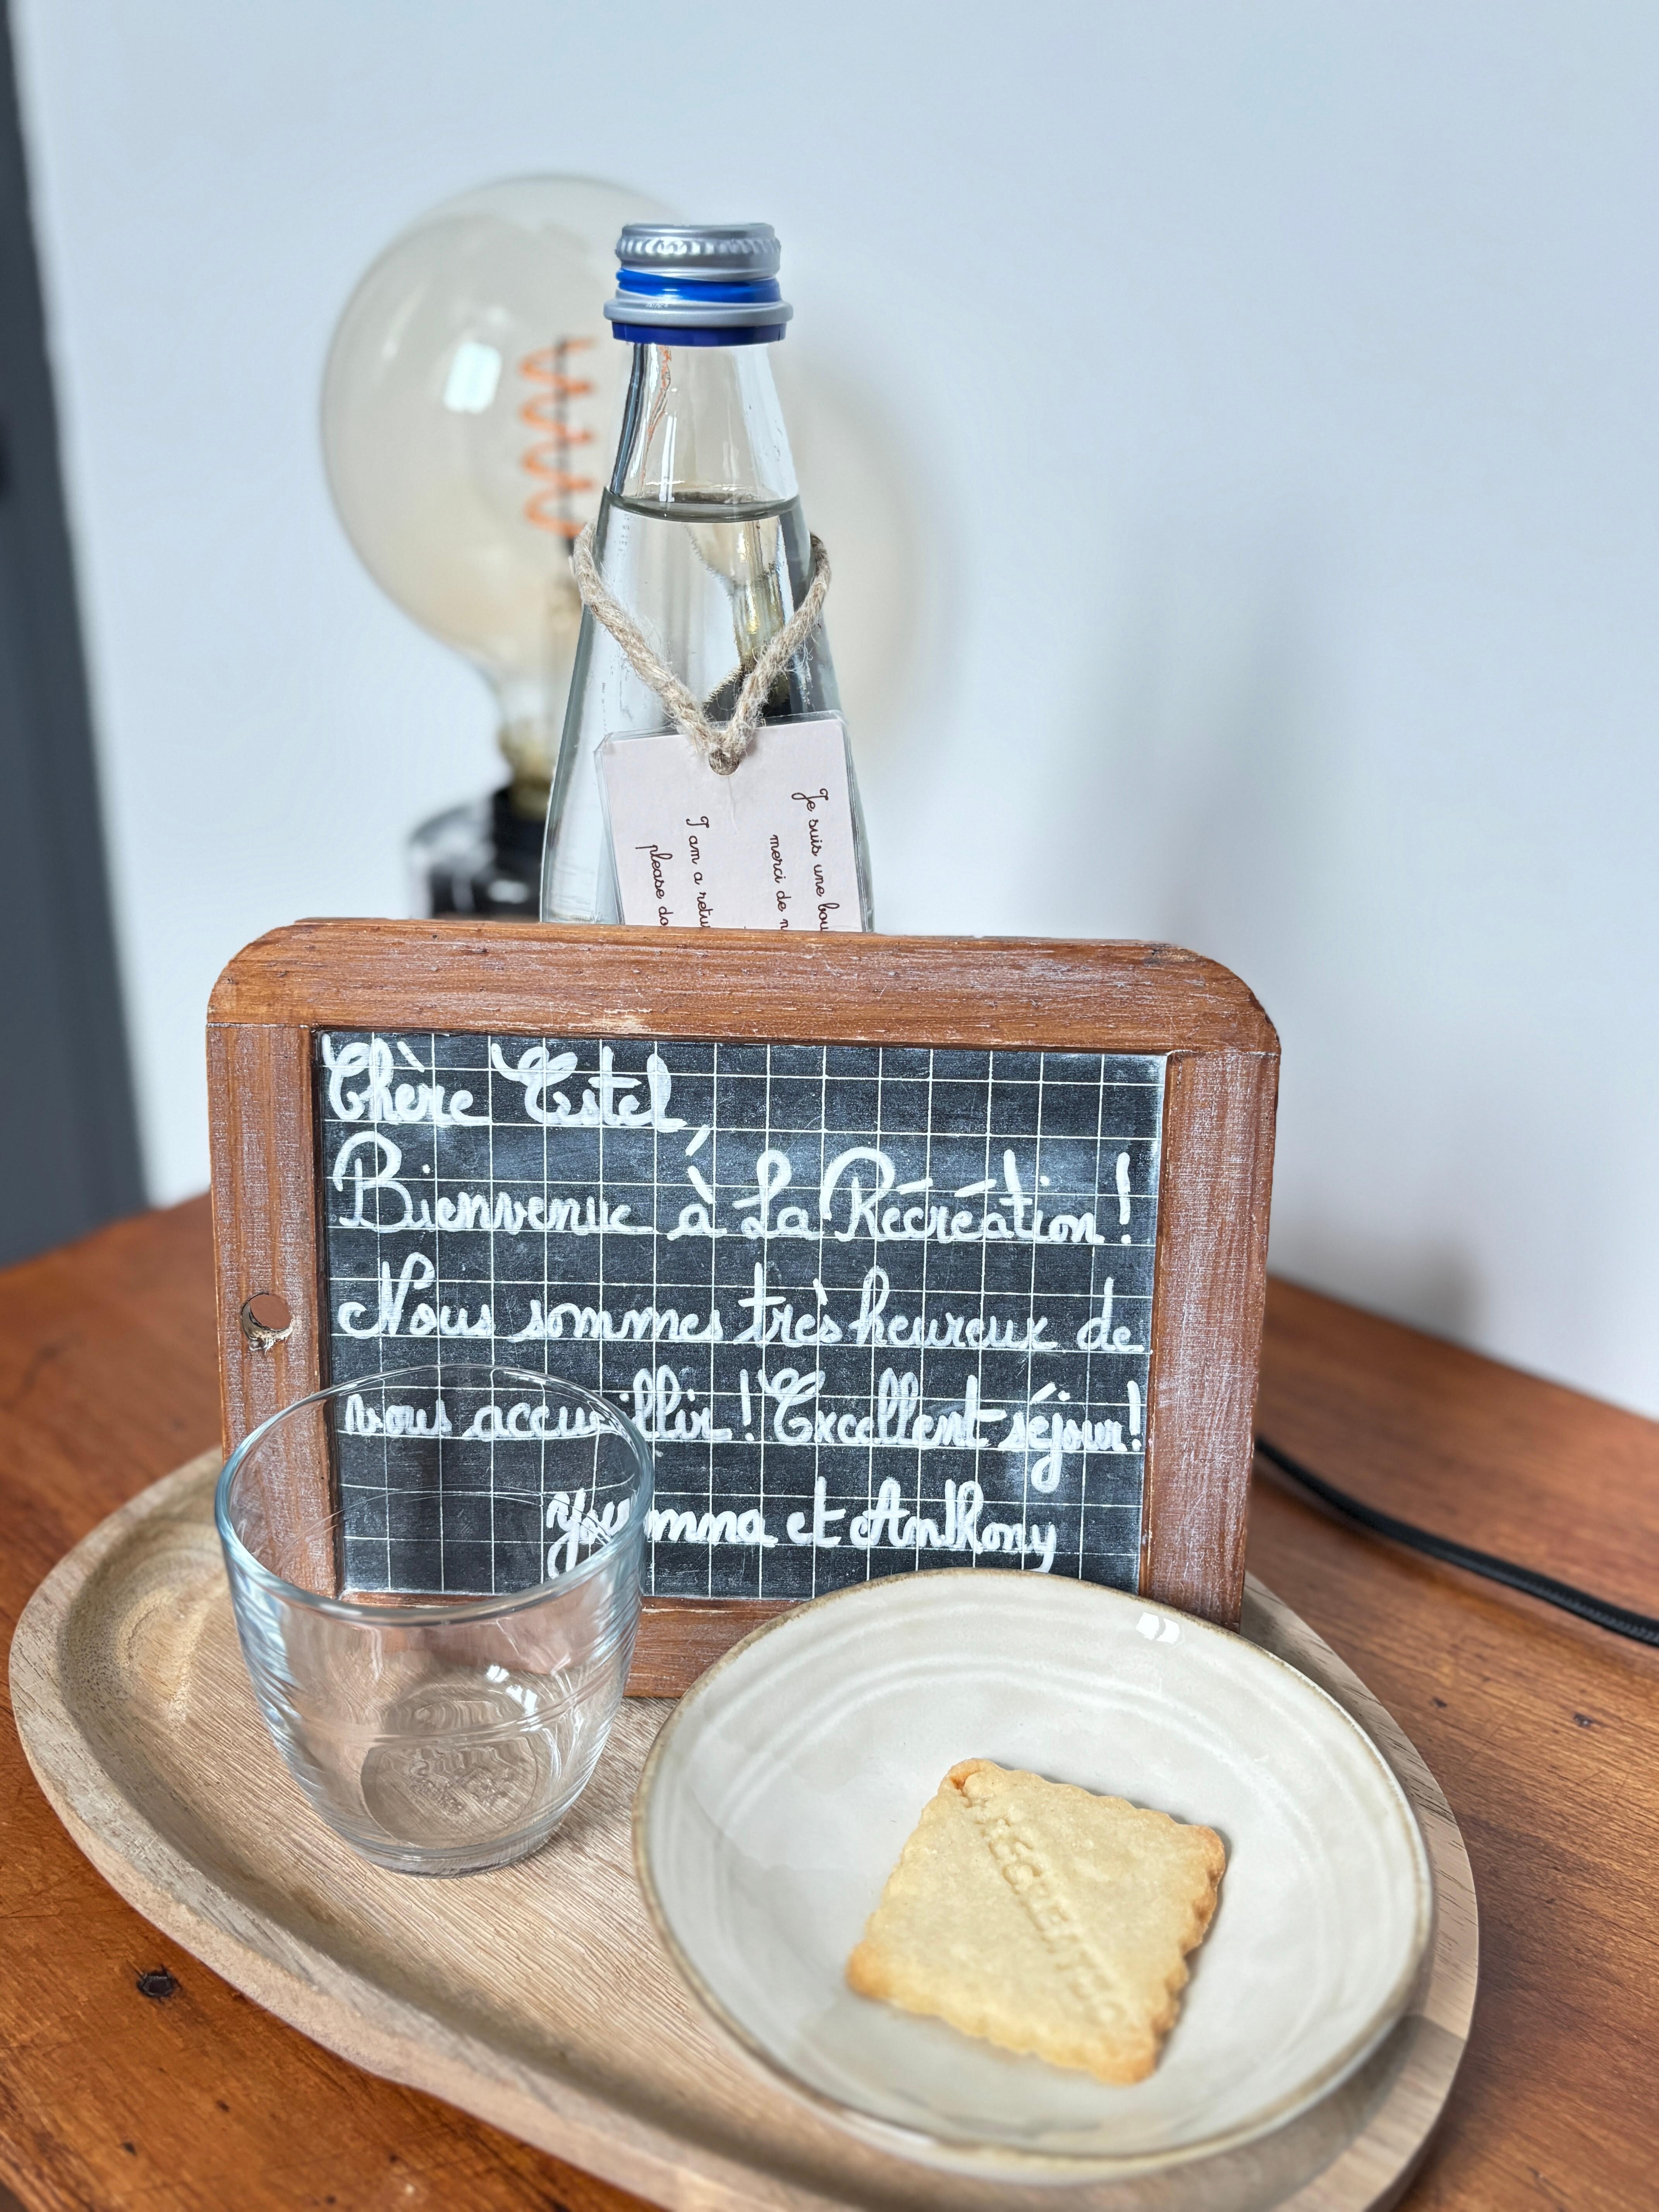 Je suis une bou
merci de n
I am a retu
please do
Chère Estel,
Bienvenue à La Récréation !
Nous sommes très heureux de
vous accueillir ! Excellent séjour !
Youmna et Anthony